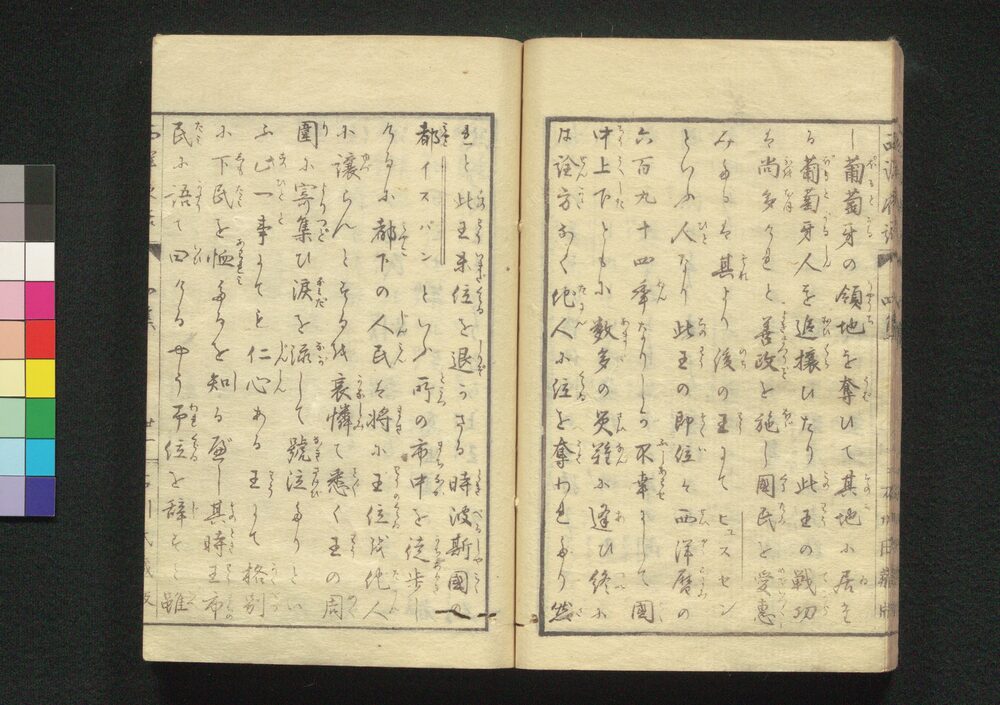 し葡萄牙の領地を奪ひて其地に居る
る葡萄牙人を追攘ひたり此王の戦功
は尚多けれと善政を施し國民を受惠
みたるは其より後の王にて ヒュスセン
といふ人なり此王の即位は西洋暦の
六百九十四年なりしか不幸にして國
中上下ともに数多の災難に逢ひ終に
は詮方なく他人に位を奪われたり然
れと此王未位を退かさる時波斯國の
都イスパハンといふ所の市中を徒歩
けるに都下の人民は将に王位を他人
に譲らんとするを哀憐て悉く王の周
圍に寄集ひ涙を流して號泣たりとい
ふ此一事にても仁心ある王にて格別
に下民を恤たるを知る応し其時王市
民に語て曰けるやう予位を辞すと雖